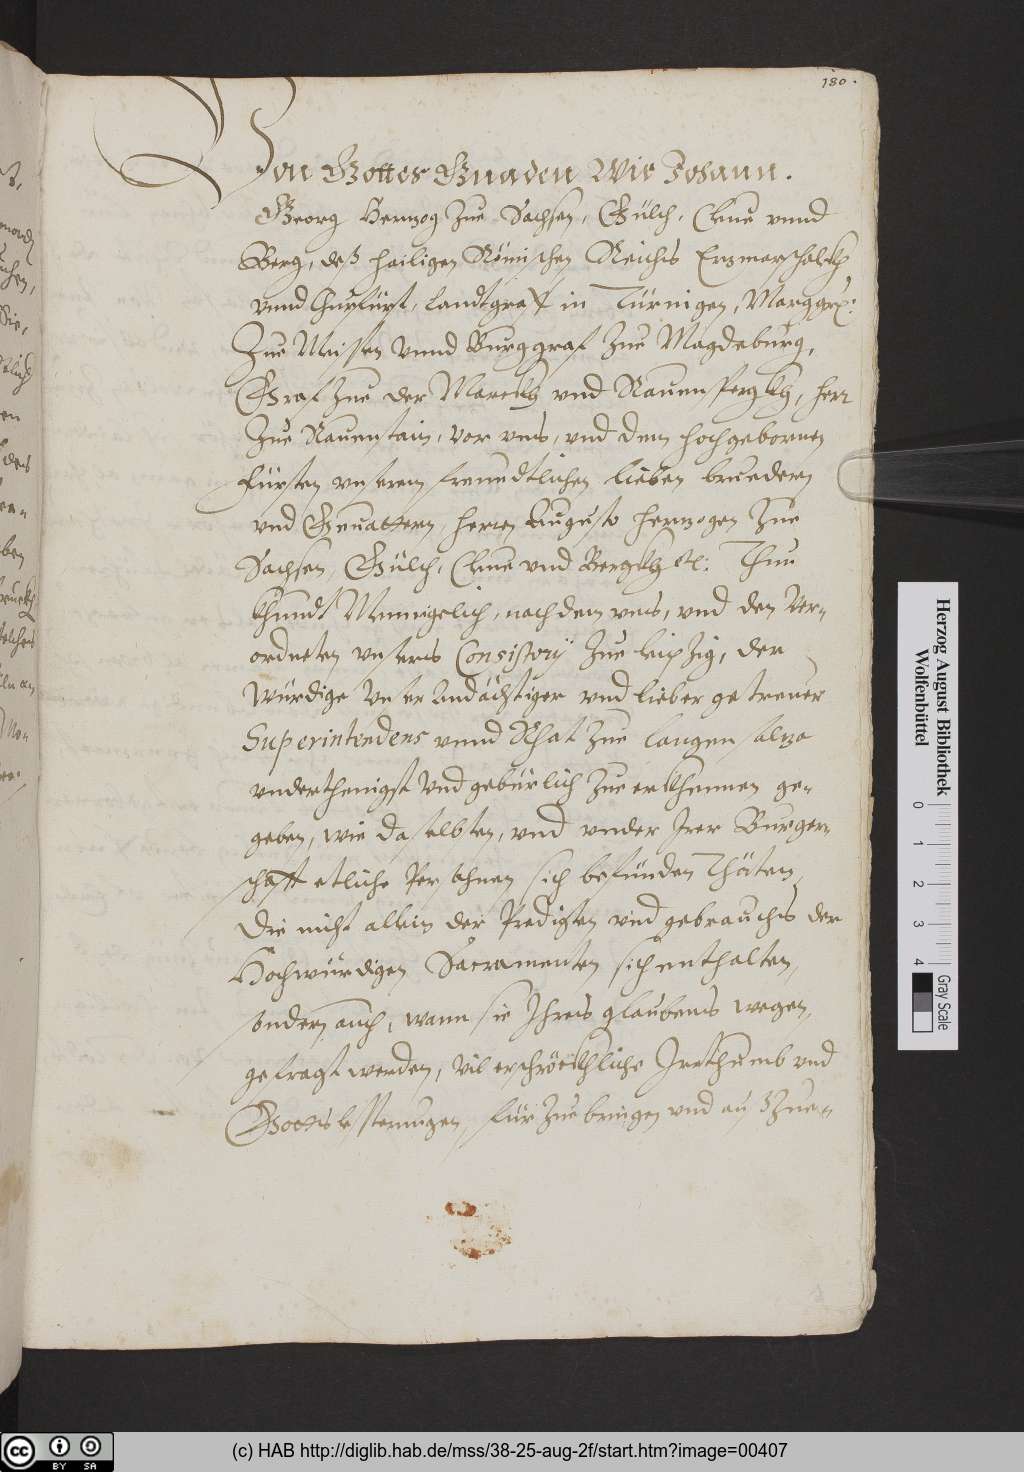 180.
Von Gottes Gnaden Wir Johann.
Georg Herzog Zue Sachsen, Gülch, Cleue vnnd
Berg, deß hailigen Römischen Reichs Erzmarschalckh
vnnd Churfürst, Landtgraff in Türingen, Marggraf:
Zue Meissen Vnnd Burggraf Zue Magdeburg,
Graf Zue der Marckh vnd Rauenspergkh, herr
Zue Rauenstain, Vor vns, vnd dem hochgebornen
Fürsten vnserem freundtlichen lieben bruedern
vnd Geuattern, herren Augusto herzogen Zue
Sachsen, Gülch, Cleue vnd Bergkh etc: Thun
khundt Menniglich, nachdem vns, vnd den Ver-
ordneten vnsers Consistorÿ Zue Leipzig, der
Würdige Vnser Andächtiger vnd lieber getreuer
Superintendens vnnd Rhat Zue langen salza
vnderthenigst Vnd gebürlich Zue erkhennen ge-
geben, wie daselbsten, vnd vnder Irer Burger-
schafft etliche Persohnen sich befünden Thäten,
Die nicht allein der Predigten vnd gebrauchs der
Hochwürdigen Sacramenten sich enthalten,
sondern auch, wann sie Ihres glaubens wegen,
gefragt werden, Vil erschröckhliche Irrthumb vnd
Gottslesterungen, für Zue bringen vnd auß Zue-
Herzog August Bibliothek
Wolfenbüttel
0 1 2 3 4
Gray Scale
cc BY SA
(c) HAB http://diglib.hab.de/mss/38-25-aug-2f/start.htm?image=00407